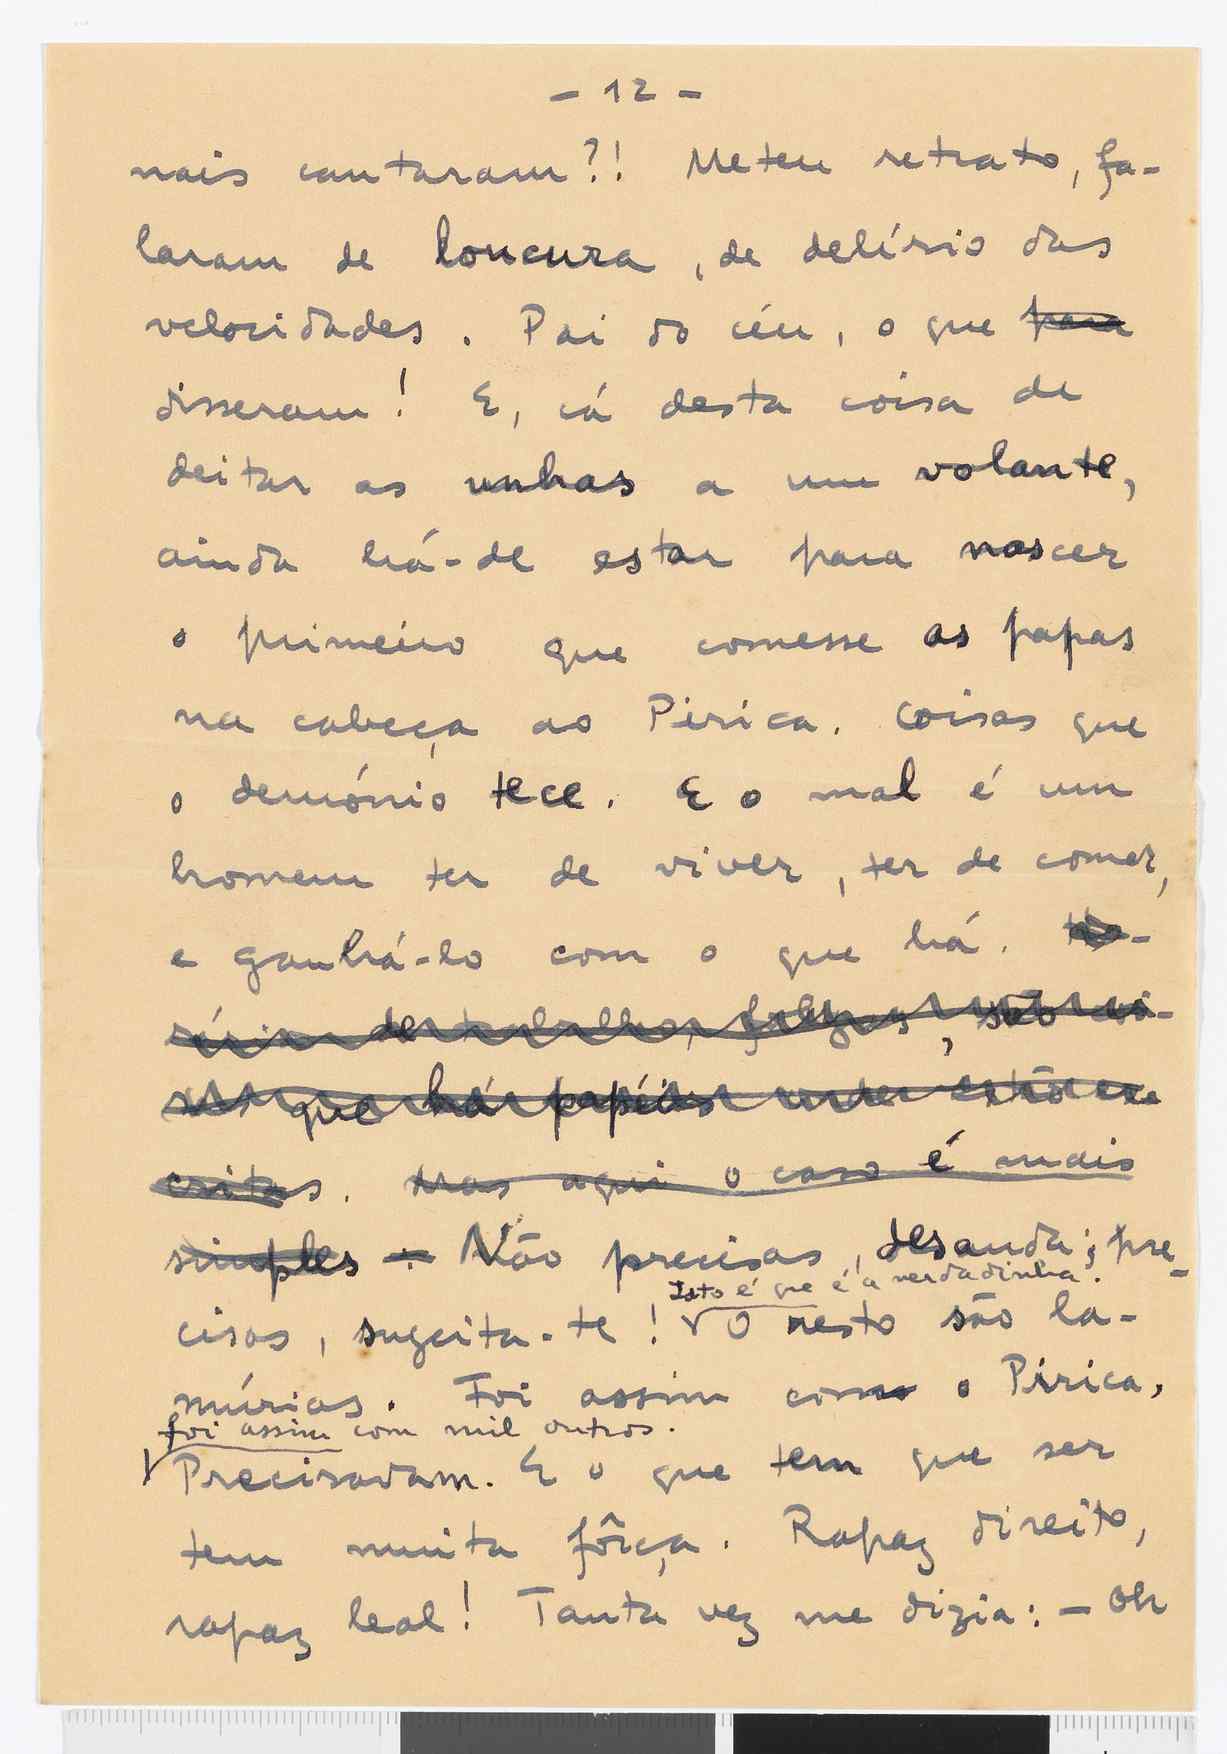 - 12 -
nais cantaram?! Meteu retrato, fa-
laram de loucura, de delírio das
velocidades. Pai do céu, o que para
disseram! E, cá desta coisa de
deitar as unhas a um volante,
ainda há-de estar para nascer
o primeiro que comesse as papas
na cabeça ao Pirica. Coisas que
o demónio tece. E o mal é um
homem ter de viver, ter de comer,
e ganhá-lo com o que há.
de trabalho, são
que há papéis onde estão es-
critas. Mas aqui o caso é mais
simples - Não precisas, desanda; pre-
Isto é que é a verdadinha.
cisas, sugeita-te! O resto são la-
múrias. Foi assim com o Pirica.
Foi assim com mil outros.
Precisavam. E o que tem que ser
tem muita fôrça. Rapaz direito,
rapaz leal! Tanta vez me dizia: - Oh